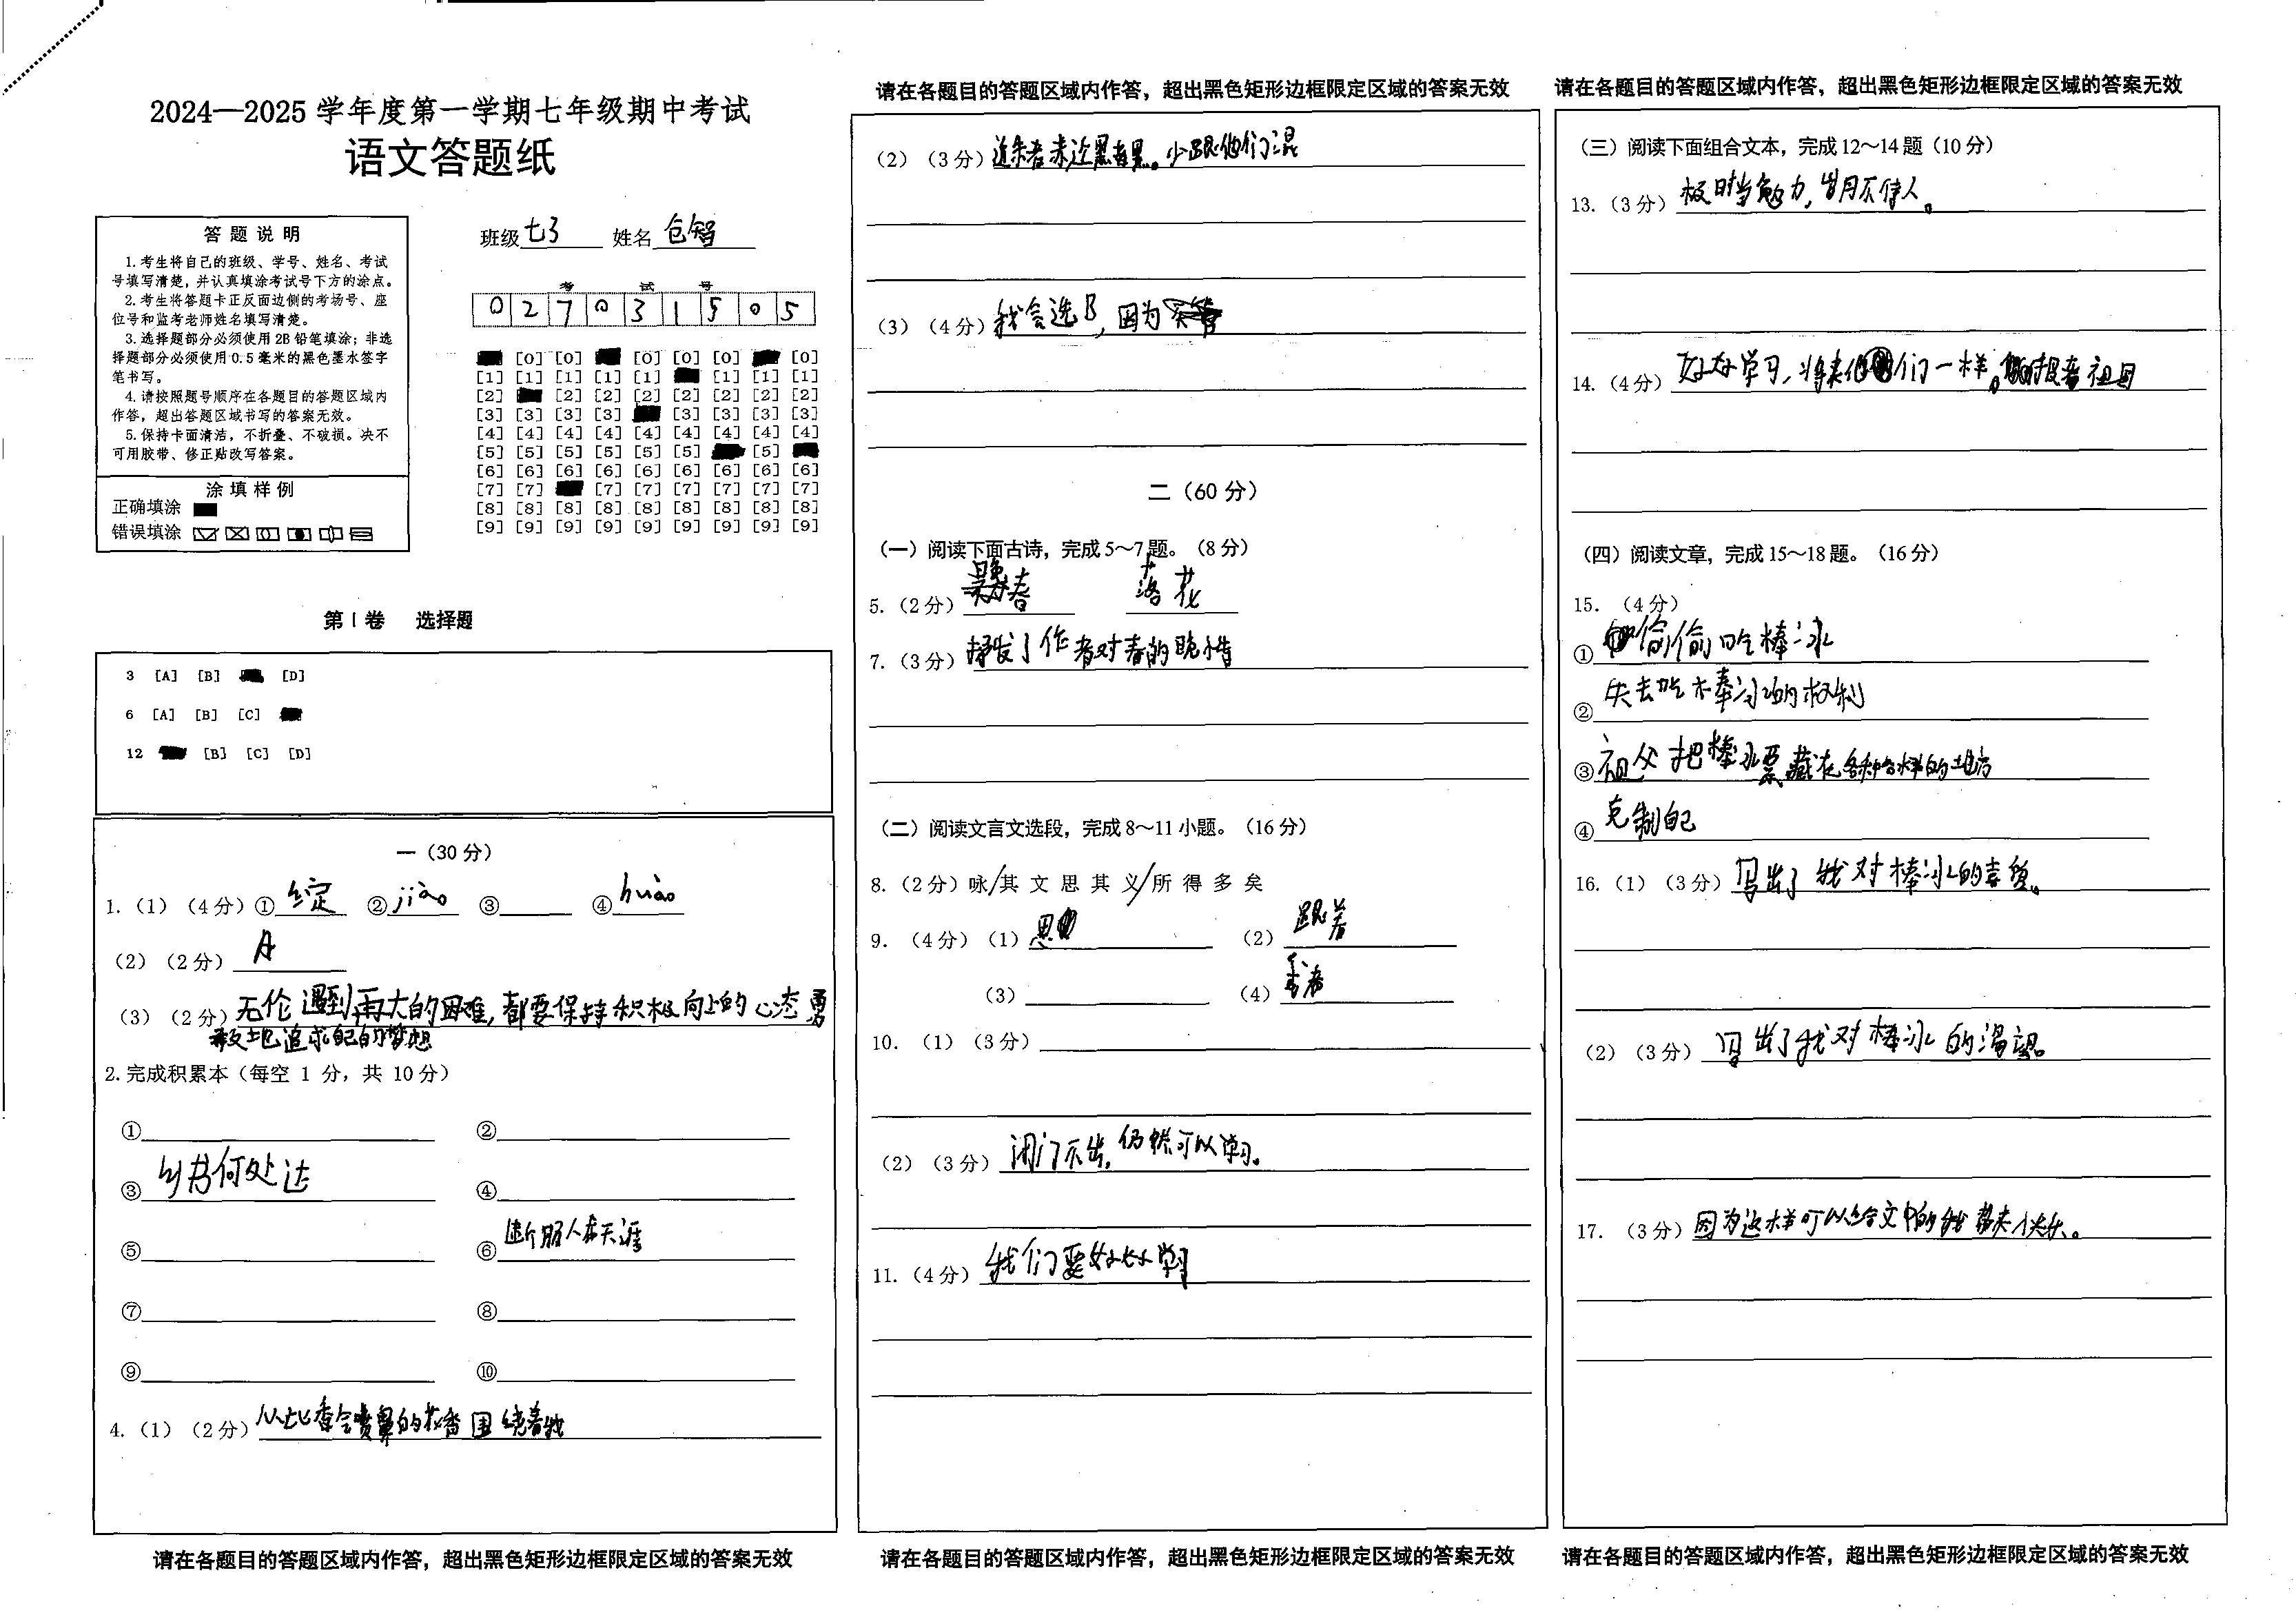 2024—2025 学年度第一学期七年级期中考试
语文答题纸
答 题 说 明
1.考生将自己的班级、学号、姓名、考试
号填写清楚，并认真填涂考试号下方的涂点。
2.考生将答题卡正反面边侧的考场号、座
位号和监考老师姓名填写清楚。
3.选择题部分必须使用2B铅笔填涂；非选
择题部分必须使用0.5毫米的黑色墨水签字
笔书写。
4.请按照题号顺序在各题目的答题区域内
作答，超出答题区域书写的答案无效。
5.保持卡面清洁，不折叠、不破损。决不
可用胶带、修正贴改写答案。
涂 填 样 例
正确填涂
错误填涂
班级 七3 姓名 仓智
考 试 号
0 2 7 0 3 1 5 0 5
[0] [0] [0] [0] [0] [0]
[1] [1] [1] [1] [1] [1] [1] [1]
[2] [2] [2] [2] [2] [2] [2] [2]
[3] [3] [3] [3] [3] [3] [3] [3]
[4] [4] [4] [4] [4] [4] [4] [4] [4]
[5] [5] [5] [5] [5] [5] [5]
[6] [6] [6] [6] [6] [6] [6] [6] [6]
[7] [7] [7] [7] [7] [7] [7] [7]
[8] [8] [8] [8] [8] [8] [8] [8] [8]
[9] [9] [9] [9] [9] [9] [9] [9] [9]
第Ⅰ卷 选择题
3 [A] [B] [D]
6 [A] [B] [C]
12 [B] [C] [D]
一（30 分）
1.（1）（4 分）① 绽 ② jiào ③ ④ huào
（2）（2 分） A
（3）（2 分） 无伦遇到再大的困难，都要保持积极向上的心态勇
敢地追求自己的梦想
2.完成积累本（每空 1 分，共 10 分）
① ②
③ 乡书何处达 ④
⑤ ⑥ 断肠人在天涯
⑦ ⑧
⑨ ⑩
4.（1）（2 分） 从比香会喷鼻的花香围绕着我
请在各题目的答题区域内作答，超出黑色矩形边框限定区域的答案无效
请在各题目的答题区域内作答，超出黑色矩形边框限定区域的答案无效
（2）（3 分） 近朱者赤近黑者黑。少跟他们混
（3）（4 分） 我会选B，因为
二（60 分）
（一）阅读下面古诗，完成 5～7 题。（8 分）
5.（2 分） 春 落花
7.（3 分） 抒发了作者对春的惋惜
（二）阅读文言文选段，完成 8～11 小题。（16 分）
8.（2 分）咏/其 文 思 其 义/所 得 多 矣
9.（4 分）（1） 思 （2） 跟着
（3） （4）
10.（1）（3 分）
（2）（3 分） 闭门不出，仍然可以学习。
11.（4 分） 我们要好好学习
请在各题目的答题区域内作答，超出黑色矩形边框限定区域的答案无效
请在各题目的答题区域内作答，超出黑色矩形边框限定区域的答案无效
（三）阅读下面组合文本，完成 12～14 题（10 分）
13.（3 分） 极时当勉力，岁月不侍人。
14.（4 分） 好好学习，将来他们一样。报答祖国
（四）阅读文章，完成 15～18 题。（16 分）
15.（4 分）
① 偷偷吃棒冰
② 失去吃棒冰的权利
③ 祖父把棒冰票藏在各种各样的地方
④ 克制自己
16.（1）（3 分） 写出了我对棒冰的喜爱。
（2）（3 分） 写出了我对棒冰的渴望。
17.（3 分） 因为这样可以给文中的我带来快乐。
请在各题目的答题区域内作答，超出黑色矩形边框限定区域的答案无效